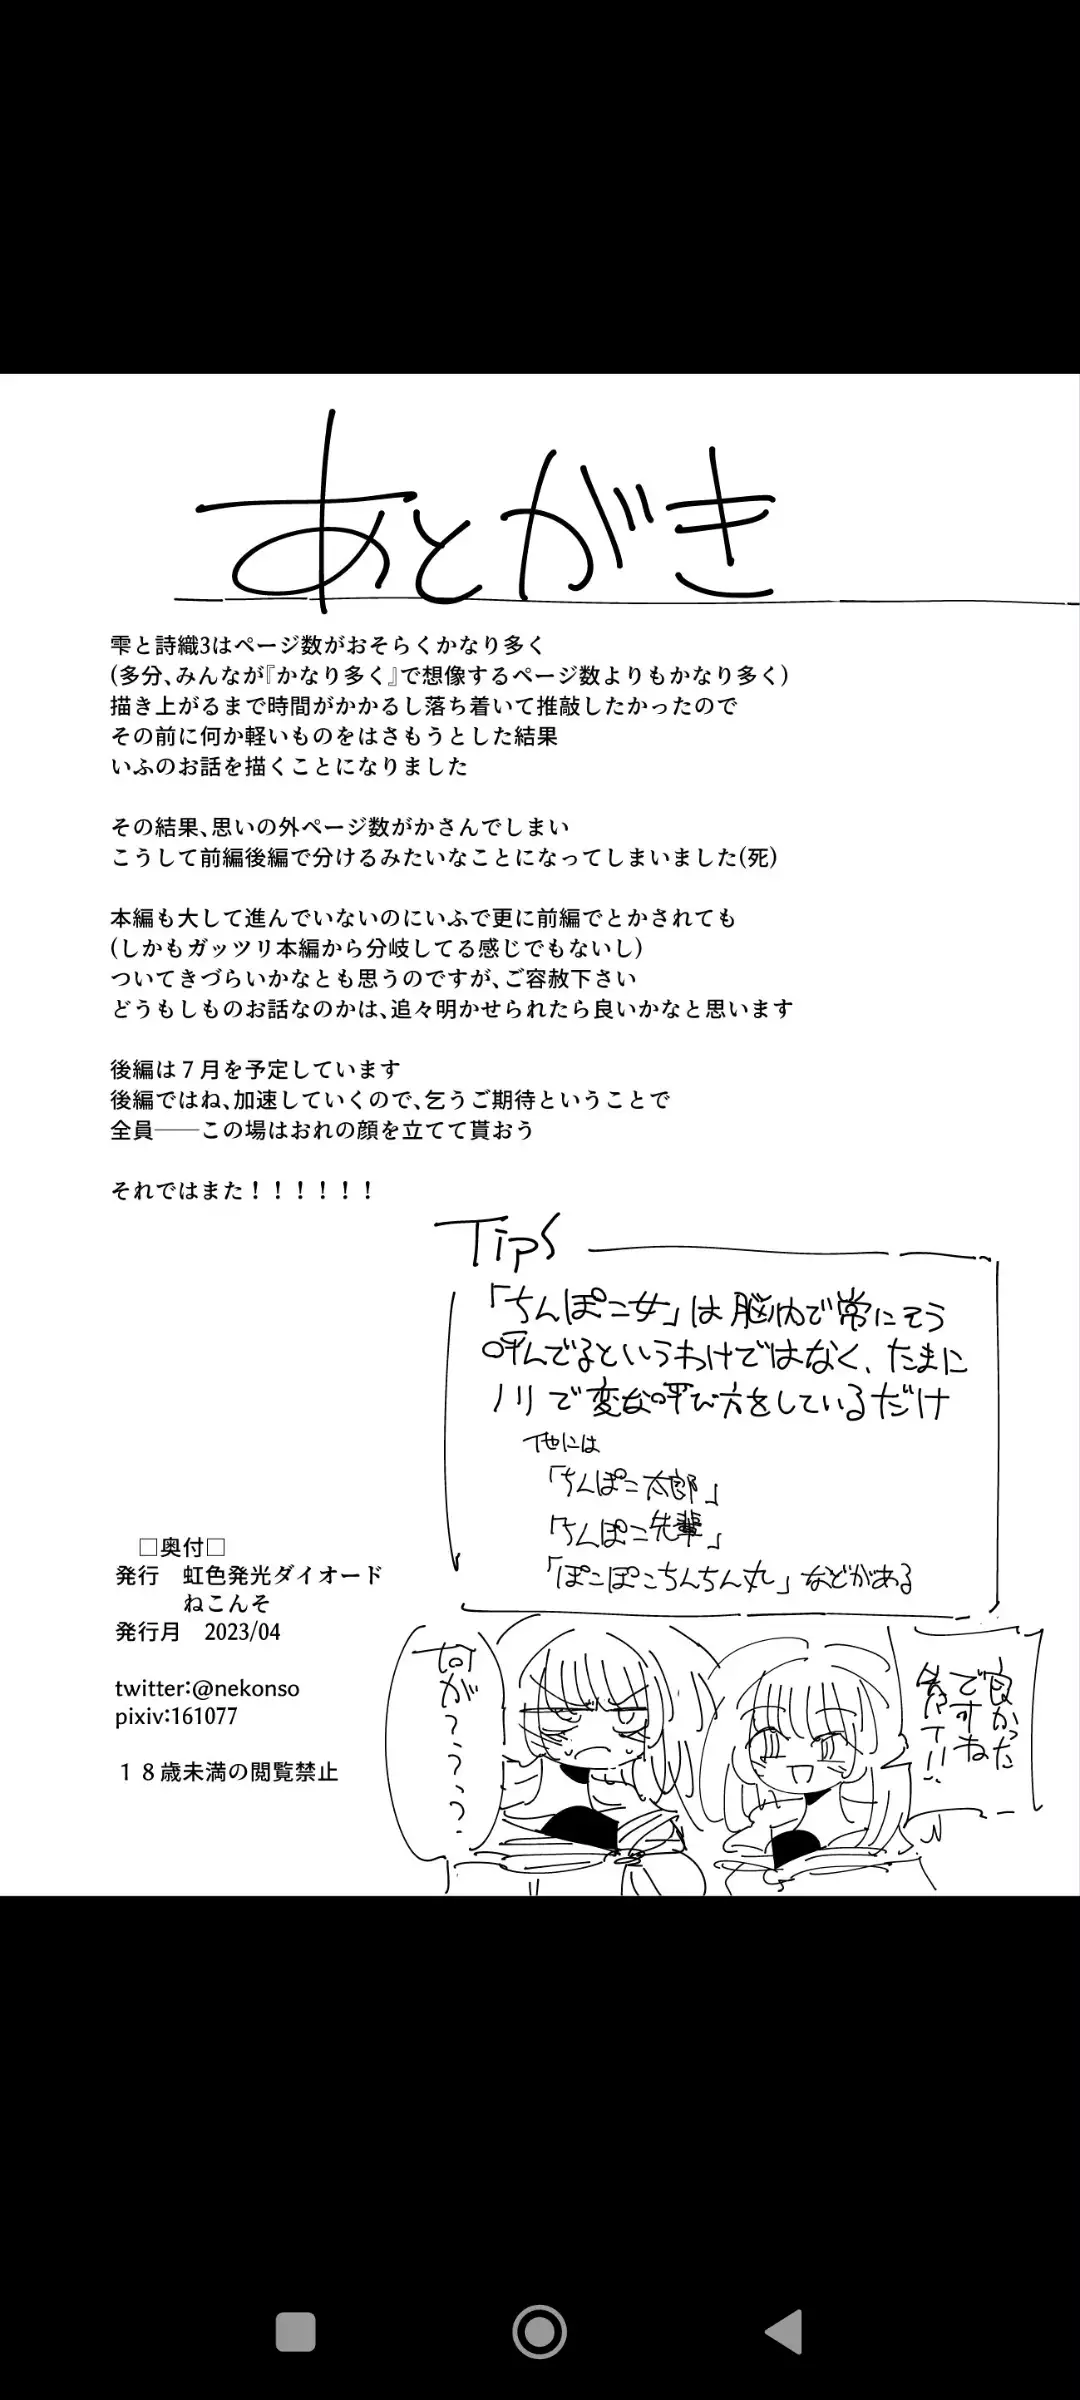 あとがき
雫と詩織3はページ数がおそらくかなり多く
(多分、みんなが『かなり多く』で想像するページ数よりもかなり多く)
描き上がるまで時間がかかるし落ち着いて推敲したかったので
その前に何か軽いものをはさもうとした結果
いふのお話を描くことになりました
その結果、思いの外ページ数がかさんでしまい
こうして前編後編で分けるみたいなことになってしまいました(死)
本編も大して進んでいないのにいふで更に前編でとかされても
(しかもガッツリ本編から分岐してる感じでもないし)
ついてきづらいかなとも思うのですが、ご容赦下さい
どうもしものお話なのかは、追々明かせられたら良いかなと思います
後編は７月を予定しています
後編ではね、加速していくので、乞うご期待ということで
全員──この場はおれの顔を立てて貰おう
それではまた！！！！！！
Tips
「ちんぽこ女」は脳内で常にそう
呼んでるというわけではなく、たまに
ノリで変な呼び方をしているだけ
他には
「ちんぽこ太郎」
「ちんぽこ先輩」
「ぽこぽこちんちん丸」などがある
□奥付□
発行　虹色発光ダイオード
ねこんそ
発行月　2023/04
twitter:@nekonso
pixiv:161077
１８歳未満の閲覧禁止
良かった
ですね
何が？？？？